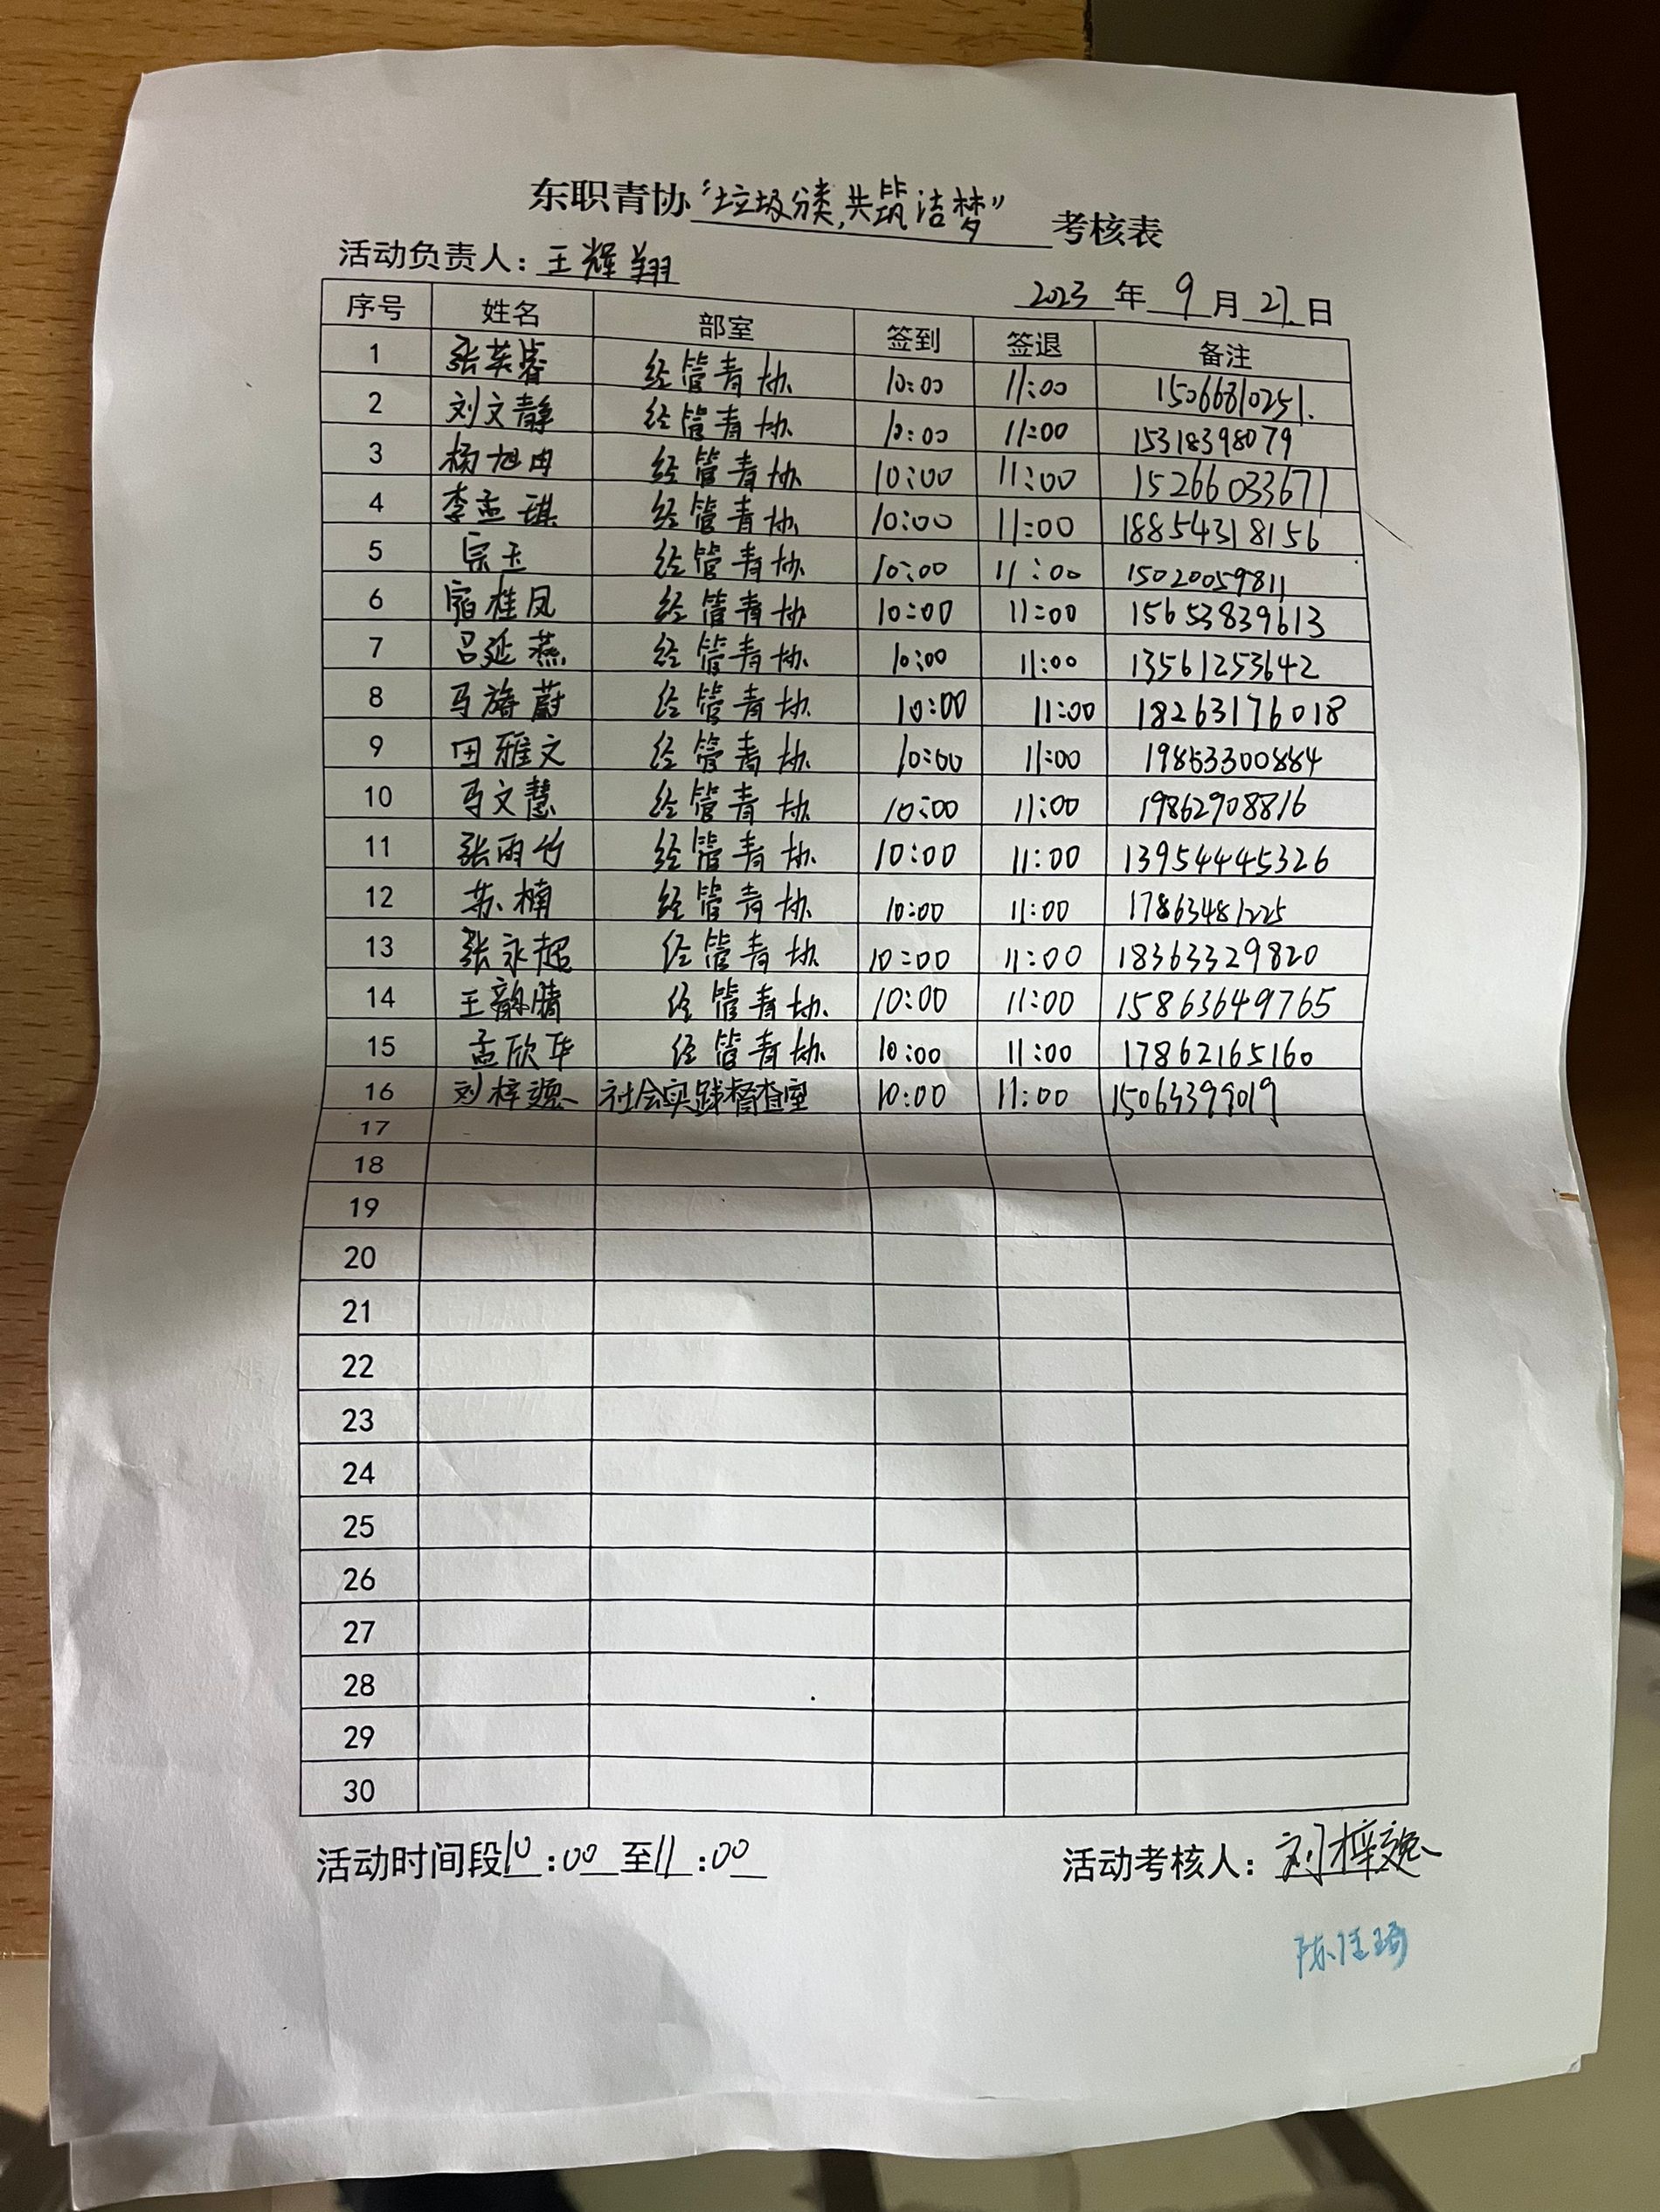 东职青协“垃圾分类,共筑洁梦”考核表
活动负责人：王辉翔
2023年9月27日
序号 姓名 部室 签到 签退 备注
1 张英睿 经管青协 10:00 11:00 15066810251.
2 刘文静 经管青协 10:00 11:00 15318398079
3 杨旭冉 经管青协 10:00 11:00 15266033671
4 李孟琪 经管青协 10:00 11:00 18854318156
5 宗玉 经管青协 10:00 11:00 15020059811
6 宿桂凤 经管青协 10:00 11:00 15653839613
7 吕延燕 经管青协 10:00 11:00 13561253642
8 马 蔚 经管青协 10:00 11:00 18263176018
9 田雅文 经管青协 10:00 11:00 19853300884
10 马文慧 经管青协 10:00 11:00 19862908816
11 张雨竹 经管青协 10:00 11:00 13954445326
12 苏楠 经管青协 10:00 11:00 17863481225
13 张永超 经管青协 10:00 11:00 18363329820
14 王韵晴 经管青协 10:00 11:00 15863649765
15 孟欣华 经管青协 10:00 11:00 17862165160
16 刘梓 社会实践督查室 10:00 11:00 15063399019
17
18
19
20
21
22
23
24
25
26
27
28
29
30
活动时间段10:00至11:00
活动考核人：刘梓
陈佳琦